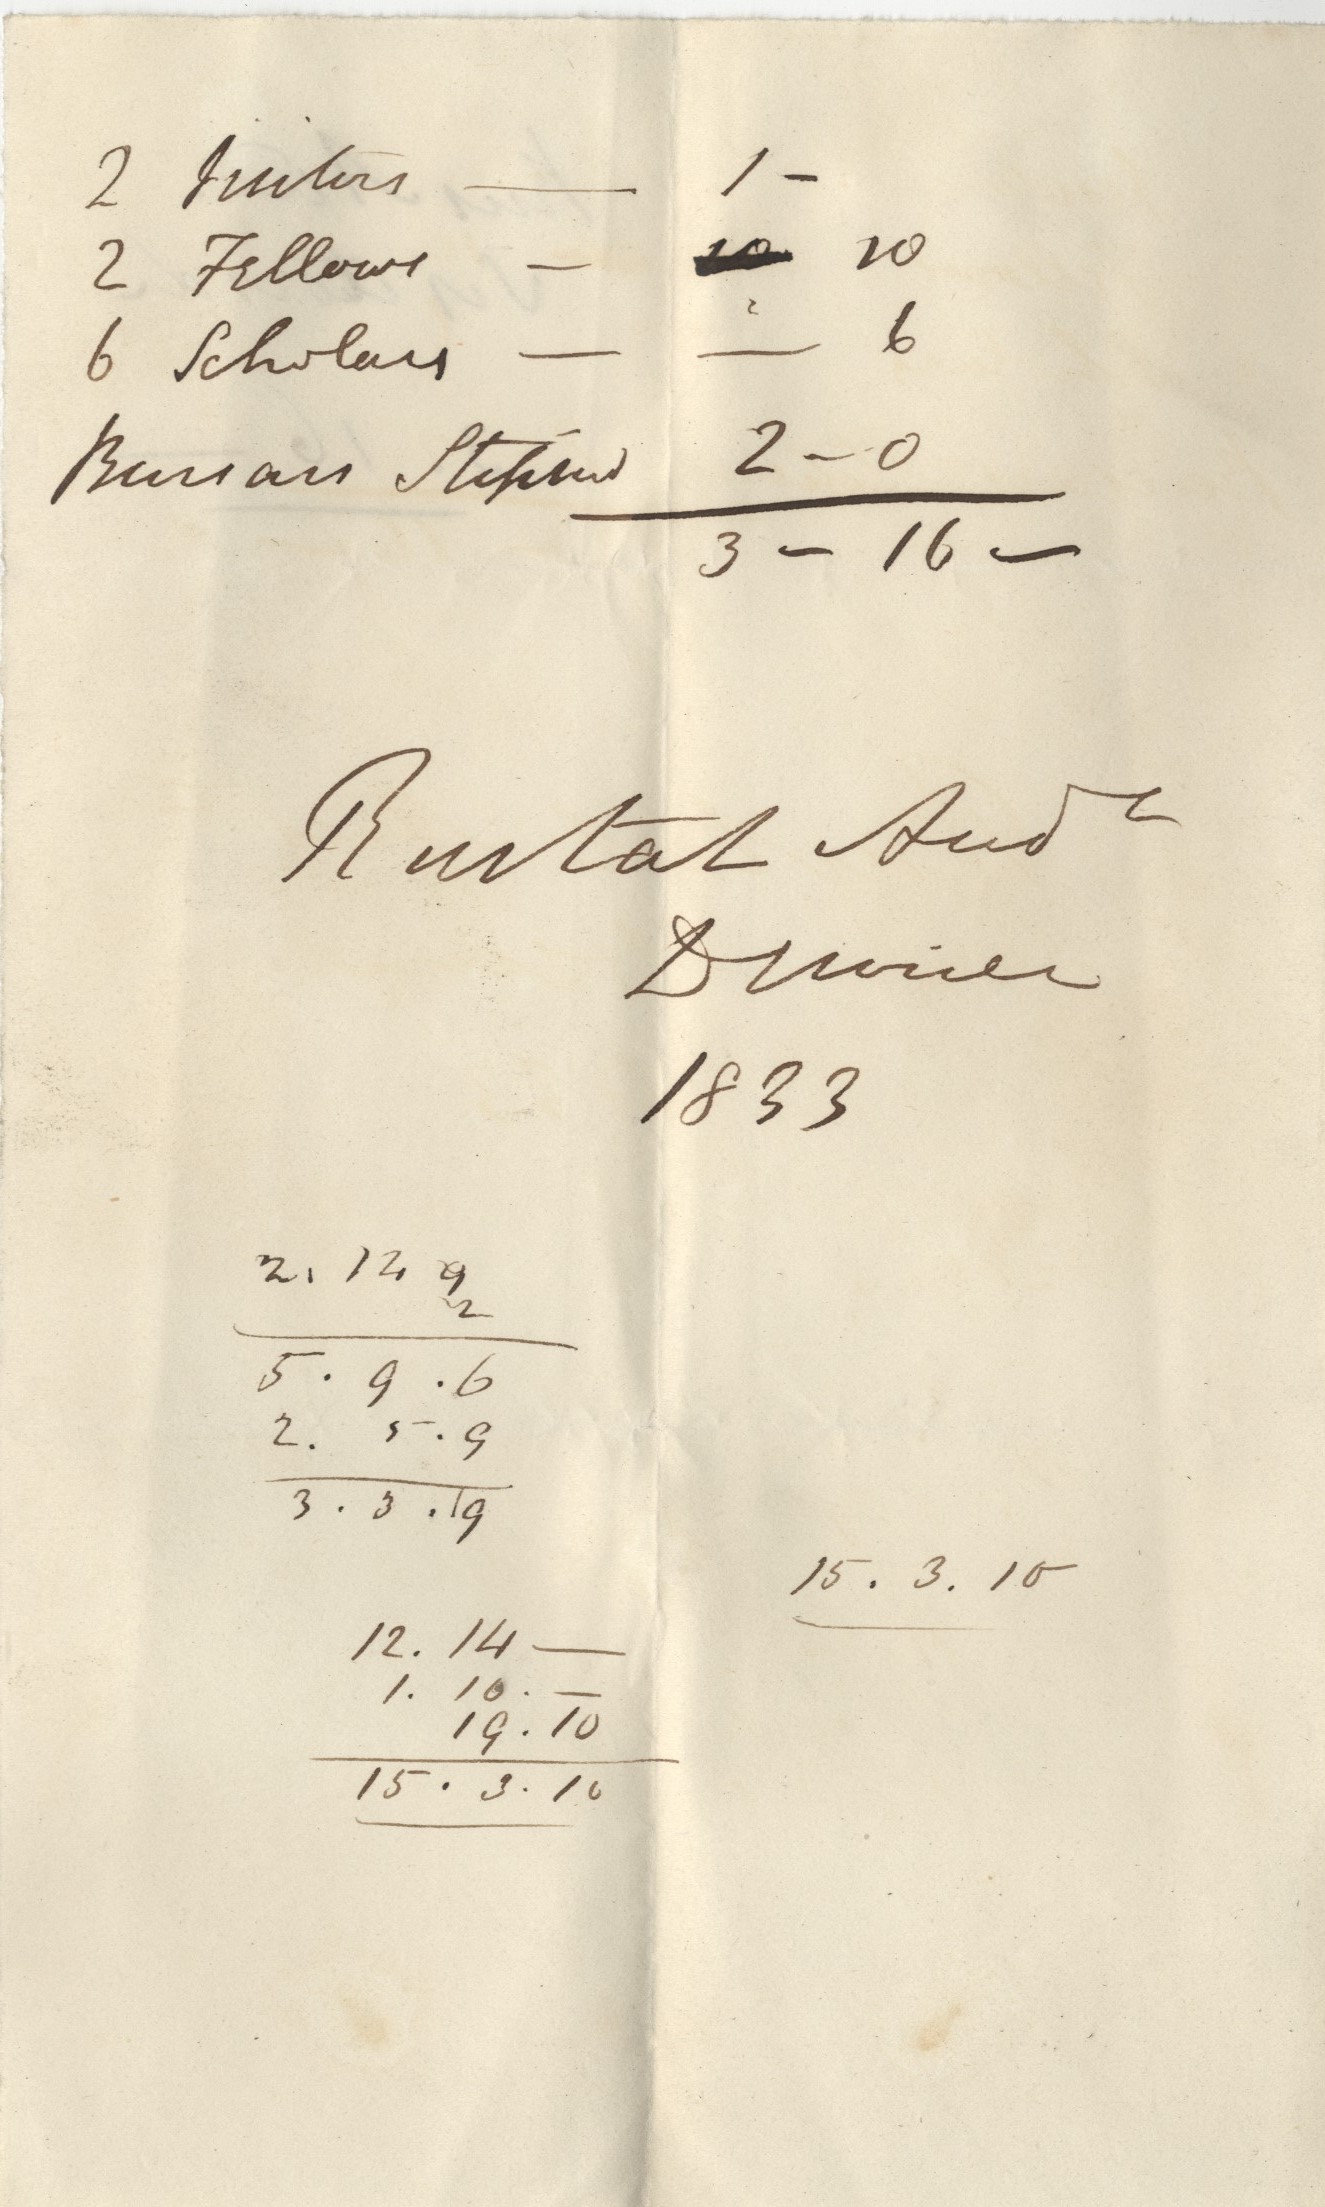 2 Visitors — 1 -
2 Fellows — 10 10
6 Scholars — — 6
Bursars Stipend 2 - 0
3 - 16 -
Rustat Aud^r
Dinner
1833
2. 14 9
2
5 . 9 . 6
2. 5 . 9
3 . 3 . 9
15 . 3 . 10
12. 14 —
1. 10 . —
19 . 10
15 . 3 . 10